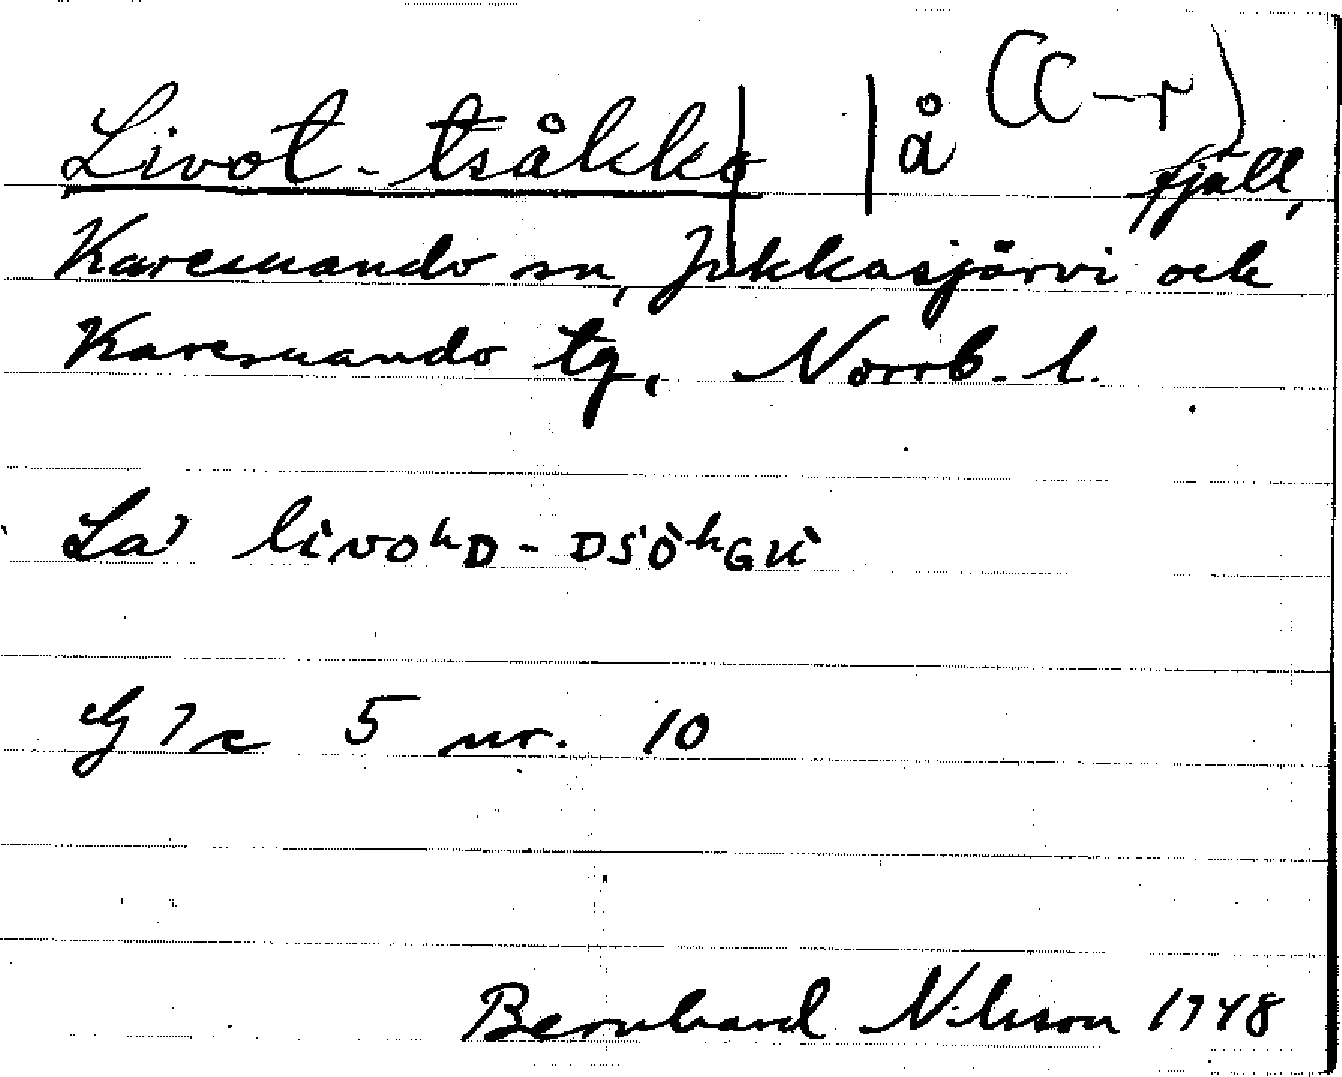 Livot-tsåkko | å (C-r) fjäll,
Karesuando sn, Jukkasjärvi och
Karesuando tg, Norrb. l.
La) livoʰD - DSÖʰGU
G 7c 5 nr. 10
Bernhard Nilsson 1948